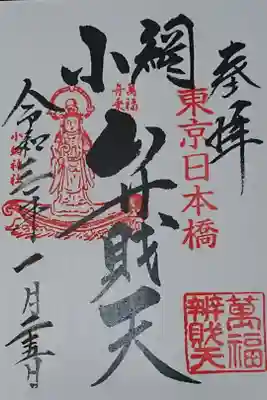 奉拝
東京日本橋
小網
弁財天
萬福
舟乗
小網神社
令和二年一月二五日
萬福
辨財天